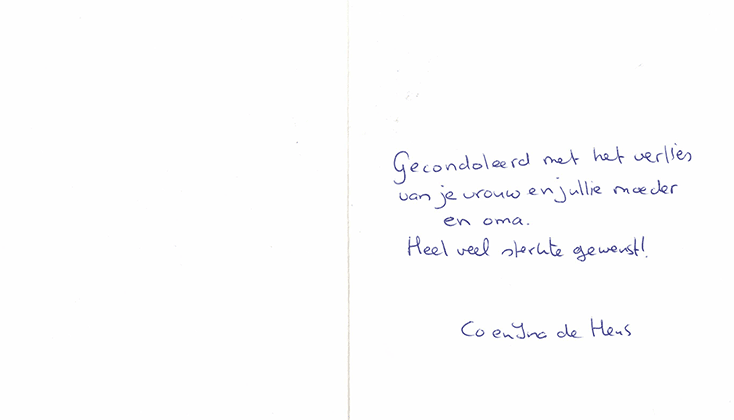 Gecondoleerd met het verlies
van je vrouw en jullie moeder
en oma.
Heel veel sterkte gewenst!
Co en Ina de Heus